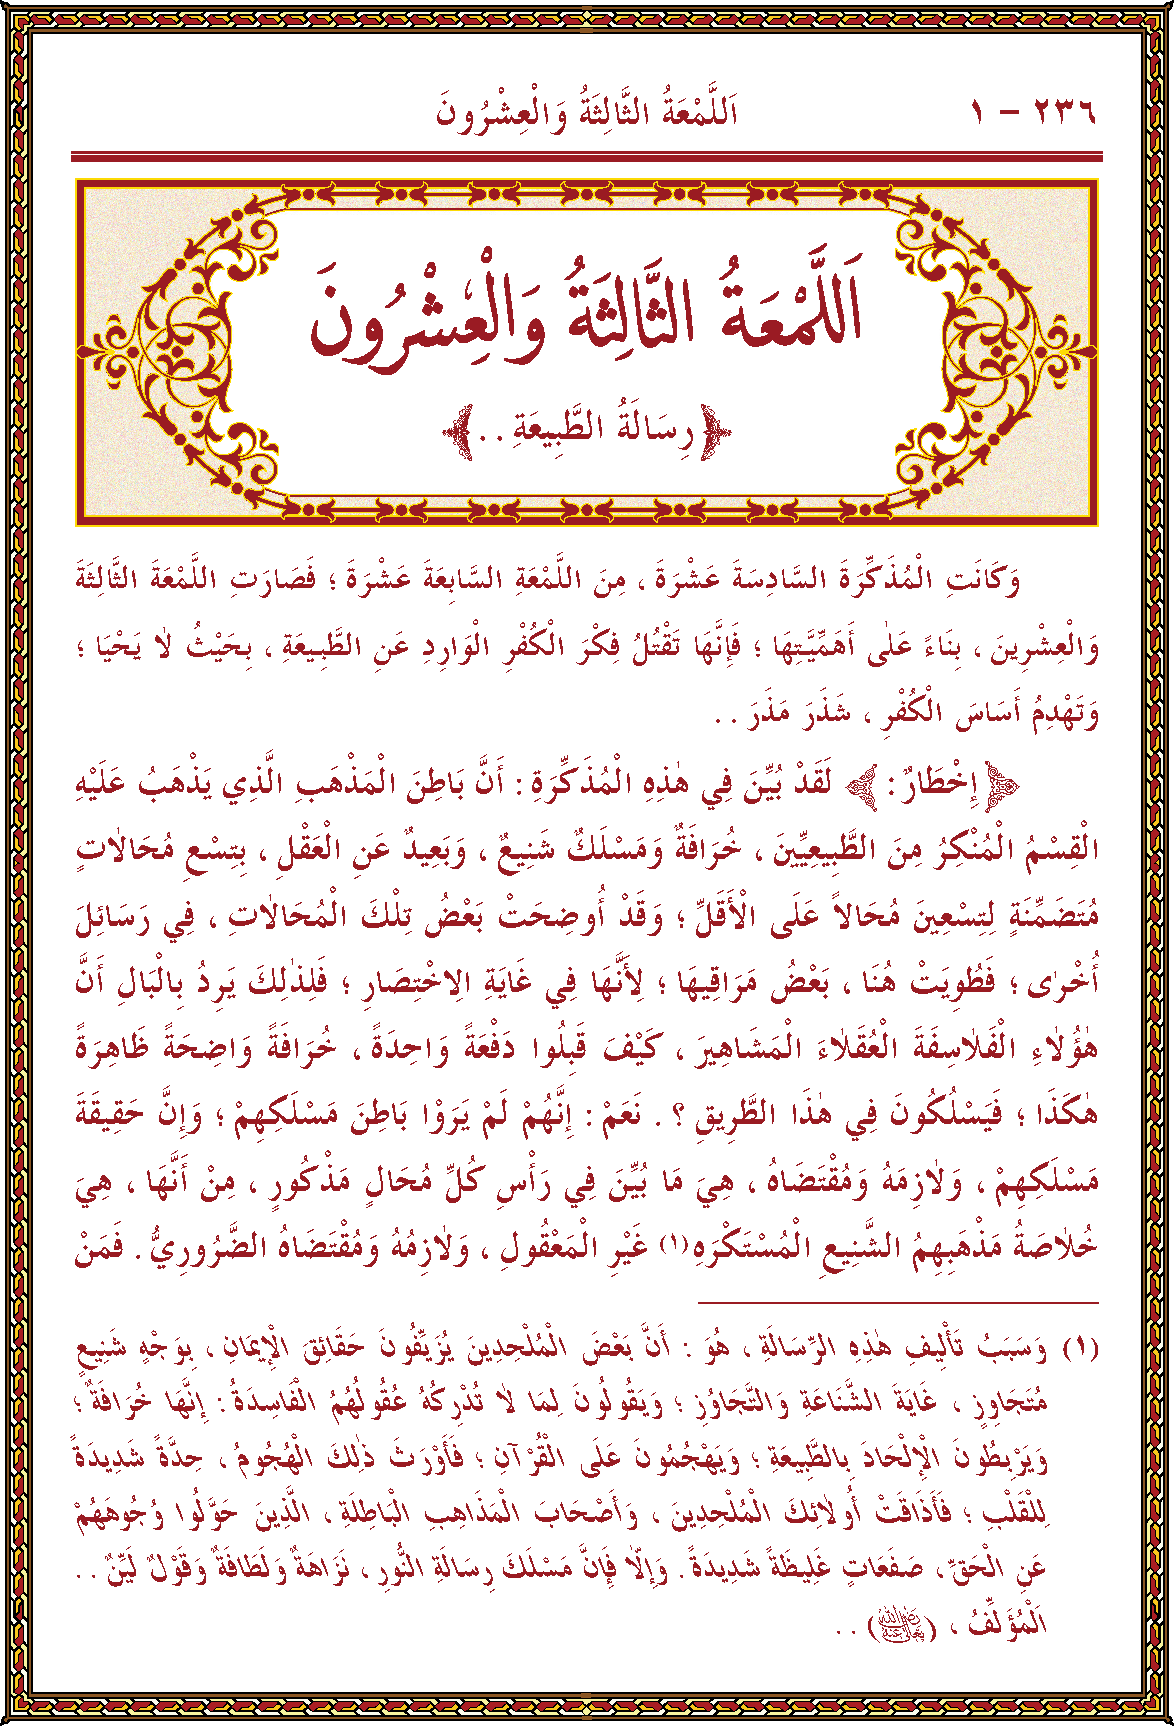 ٢٣٦ – ١ اَللَّمْعَةُ الثَّالِثَةُ وَالْعِشْرُونَ
اَللَّمْعَةُ الثَّالِثَةُ وَالْعِشْرُونَ
﴿رِسَالَةُ الطَّبِيعَةِ . .﴾
وَكَانَتِ الْمُذَكِّرَةَ السَّادِسَةَ عَشْرَةَ ، مِنَ اللَّمْعَةِ السَّابِعَةَ عَشْرَةَ ؛ فَصَارَتِ اللَّمْعَةَ الثَّالِثَةَ
وَالْعِشْرِينَ ، بِنَاءً عَلٰى أَهَمِّيَّتِهَا ؛ فَإِنَّهَا تَقْتُلُ فِكْرَ الْكُفْرِ الْوَارِدِ عَنِ الطَّبِيعَةِ ، بِحَيْثُ لَا يَحْيَا ؛
وَتَهْدِمُ أَسَاسَ الْكُفْرِ ، شَذَرَ مَذَرَ . .
﴿إِخْطَارٌ :﴾ لَقَدْ بُيِّنَ فِي هٰذِهِ الْمُذَكِّرَةِ : أَنَّ بَاطِنَ الْمَذْهَبِ الَّذِي يَذْهَبُ عَلَيْهِ
الْقِسْمُ الْمُنْكِرُ مِنَ الطَّبِيعِيِّينَ ، خُرَافَةٌ وَمَسْلَكٌ شَنِيعٌ ، وَبَعِيدٌ عَنِ الْعَقْلِ ، بِتِسْعِ مُحَالَاتٍ
مُتَضَمِّنَةٍ لِتِسْعِينَ مُحَالاً عَلَى الْأَقَلِّ ؛ وَقَدْ أُوضِحَتْ بَعْضُ تِلْكَ الْمُحَالَاتِ ، فِي رَسَائِلَ
أُخْرٰى ؛ فَطُوِيَتْ هُنَا ، بَعْضُ مَرَاقِيهَا ؛ لِأَنَّهَا فِي غَايَةِ الِاخْتِصَارِ ؛ فَلِذٰلِكَ يَرِدُ بِالْبَالِ أَنَّ
هٰؤُلَاءِ الْفَلَاسِفَةَ الْعُقَلَاءَ الْمَشَاهِيرَ ، كَيْفَ قَبِلُوا دَفْعَةً وَاحِدَةً ، خُرَافَةً وَاضِحَةً ظَاهِرَةً
هٰكَذَا ؛ فَيَسْلُكُونَ فِي هٰذَا الطَّرِيقِ ؟ . نَعَمْ : إِنَّهُمْ لَمْ يَرَوْا بَاطِنَ مَسْلَكِهِمْ ؛ وَإِنَّ حَقِيقَةَ
مَسْلَكِهِمْ ، وَلَازِمَهُ وَمُقْتَضَاهُ ، هِيَ مَا بُيِّنَ فِي رَأْسِ كُلِّ مُحَالٍ مَذْكُورٍ ، مِنْ أَنَّهَا ، هِيَ
خُلَاصَةُ مَذْهَبِهِمُ الشَّنِيعِ الْمُسْتَكْرَهِ(١) غَيْرِ الْمَعْقُولِ ، وَلَازِمُهُ وَمُقْتَضَاهُ الضَّرُورِيُّ . فَمَنْ
(١) وَسَبَبُ تَأْلِيفِ هٰذِهِ الرِّسَالَةِ ، هُوَ : أَنَّ بَعْضَ الْمُلْحِدِينَ يُزَيِّفُونَ حَقَائِقَ الْإِيمَانِ ، بِوَجْهٍ شَنِيعٍ
مُتَجَاوِزٍ ، غَايَةَ الشَّنَاعَةِ وَالتَّجَاوُزِ ؛ وَيَقُولُونَ لِمَا لَا تُدْرِكُهُ عُقُولُهُمُ الْفَاسِدَةُ : إِنَّهَا خُرَافَةٌ ؛
وَيَرْبِطُونَ الْإِلْحَادَ بِالطَّبِيعَةِ ؛ وَيَهْجُمُونَ عَلَى الْقُرْآنِ ؛ فَأَوْرَثَ ذٰلِكَ الْهُجُومُ ، حِدَّةً شَدِيدَةً
لِلْقَلْبِ ؛ فَأَذَاقَتْ أُولَائِكَ الْمُلْحِدِينَ ، وَأَصْحَابَ الْمَذَاهِبِ الْبَاطِلَةِ ، الَّذِينَ حَوَّلُوا وُجُوهَهُمْ
عَنِ الْحَقِّ ، صَفَعَاتٍ غَلِيظَةً شَدِيدَةً . وَإِلَّا فَإِنَّ مَسْلَكَ رِسَالَةِ النُّورِ ، نَزَاهَةٌ وَلَطَافَةٌ وَقَوْلٌ لَيِّنٌ . .
اَلْمُؤَلِّفُ ، (رَضِيَ اللهُ تَعَالَى عَنْهُ) . .